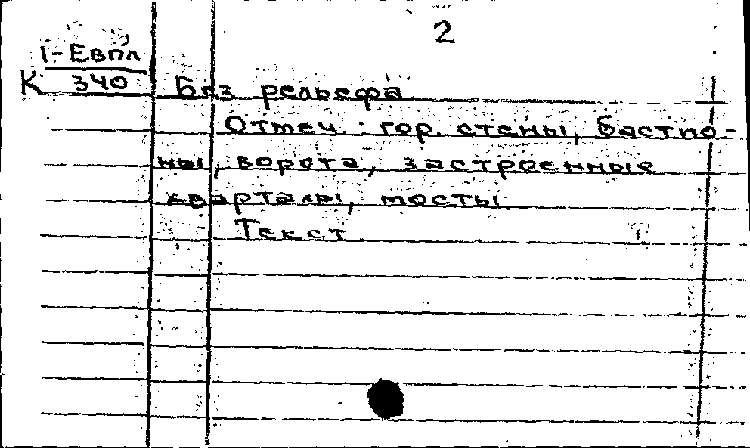 2
1-Евпл
К 340
Без рельефа
Отмеч: гор. стены, бастио-
ны, ворота, застроенные
кварталы, мосты
Текст